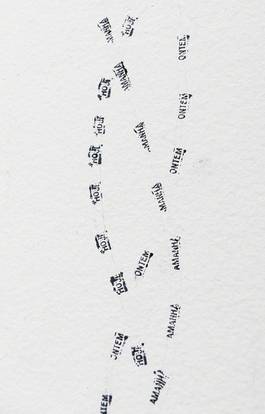 HOJE
ONTEM
HOJE
AMANHÃ
ONTEM
HOJE
AMANHÃ
HOJE
ONTEM
HOJE
AMANHÃ
HOJE
AMANHÃ
ONTEM
HOJE
AMANHÃ
ONTEM
HOJE
AMANHÃ
ONTEM